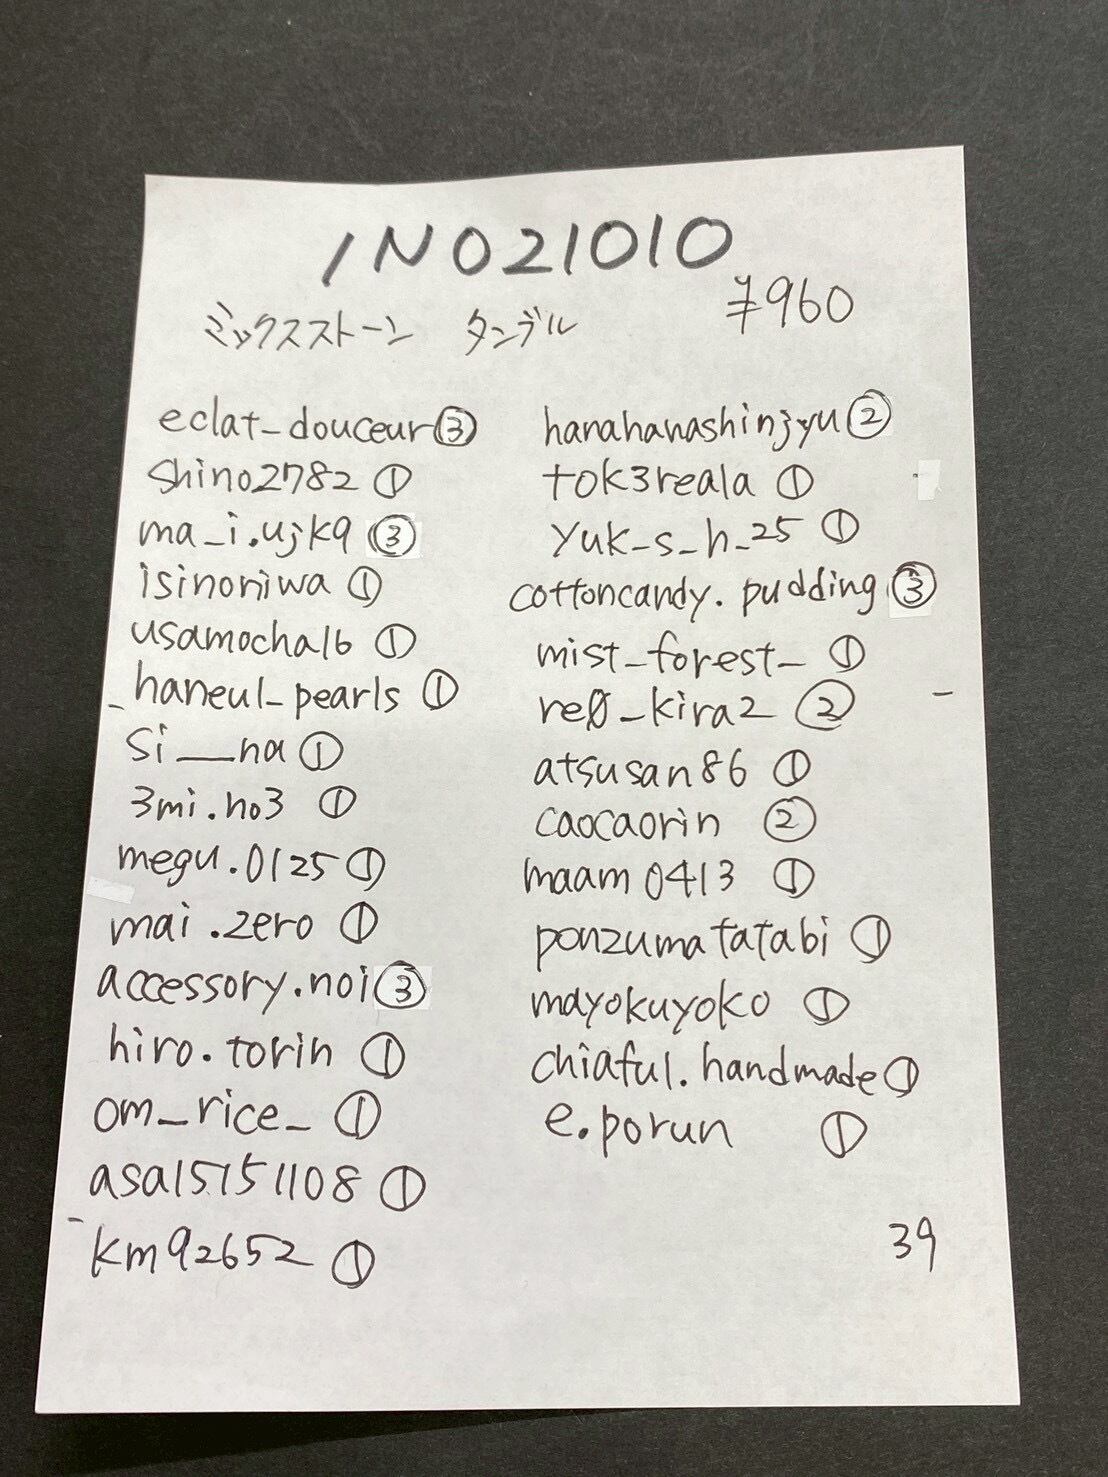 INO21010
¥960
ミックスストーン タンブル
eclat_douceur③
shino2782 ①
ma_i.ujk9 ③
isinoniwa ①
usamocha16 ①
_haneul_pearls ①
si___na ①
3mi.no3 ①
megu.0125 ①
mai.zero ①
accessory.noi③
hiro.torin ①
om_rice_ ①
asa15151108 ①
km92652 ①
hanahanashinjyu②
tok3reala ①
yuk_s_h_25 ①
cottoncandy.pudding③
mist_forest_ ①
re0_kira2 ②
atsusan86 ①
caocaorin ②
maam0413 ①
ponzumatatabi ①
mayokuyoko ①
chiaful.handmade①
e.porun ①
39